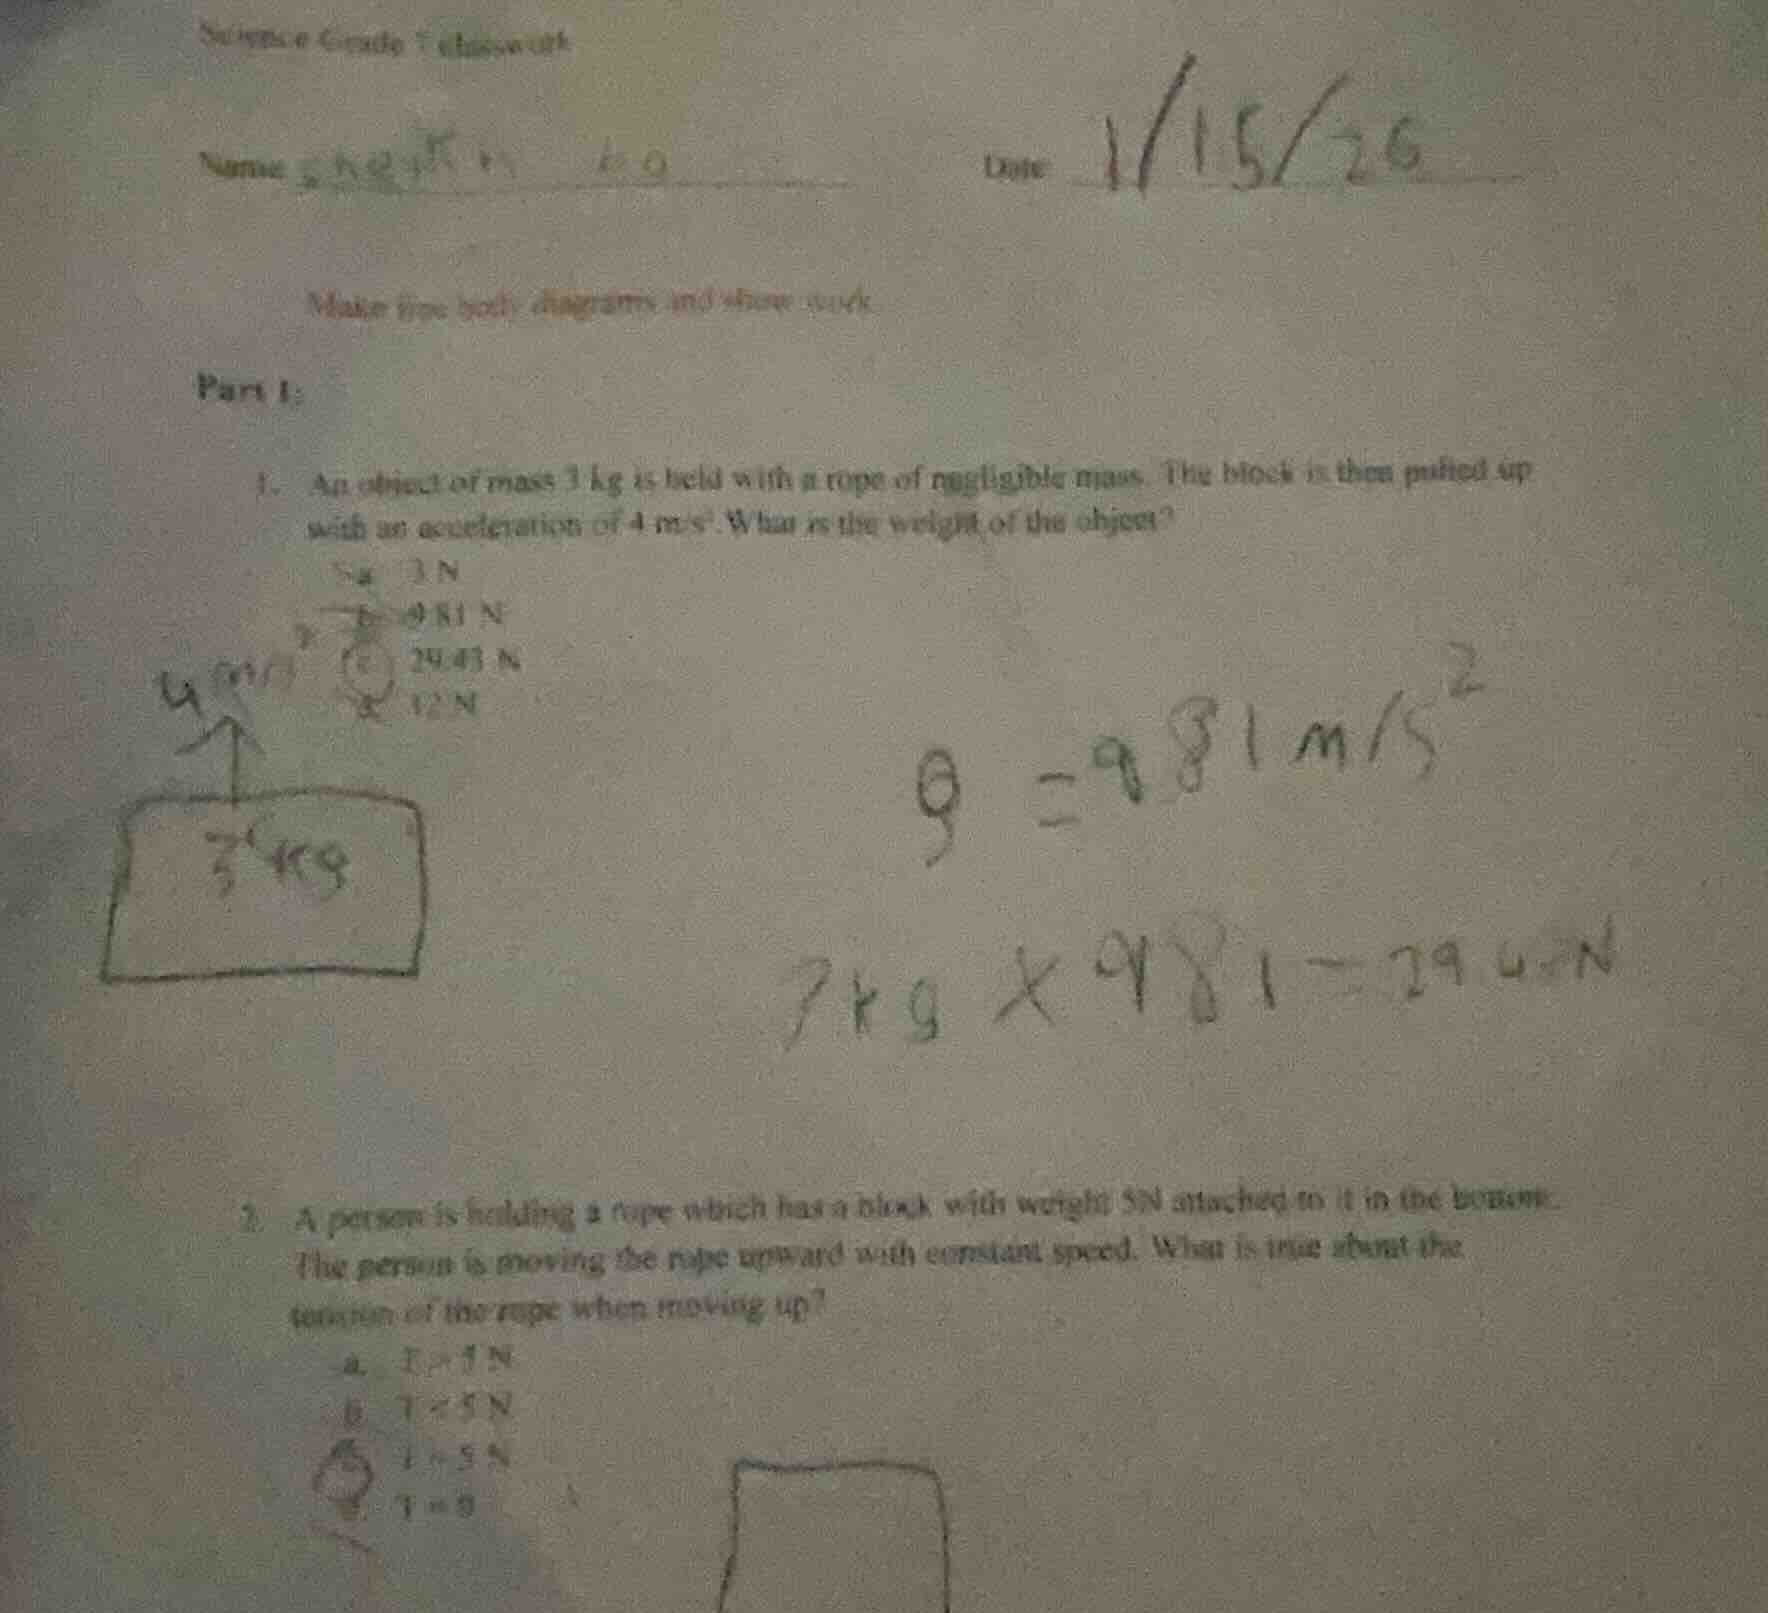 Science Grade 7 classwork
Name
Date 1/15/26
Make free body diagrams and show work
Part 1:
1. An object of mass 3 kg is held with a rope of negligible mass. The block is then pulled up
with an acceleration of 4 m/s². What is the weight of the object?
a. 3 N
b. 9.81 N
c. 29.43 N
d. 12 N
4 m/s²
3 kg
g = 9.81 m/s²
kg × 9.81 = 29.4 N
2. A person is holding a rope which has a block with weight 5N attached to it in the bottom.
The person is moving the rope upward with constant speed. What is true about the
tension of the rope when moving up?
a. T > 5 N
b. T < 5 N
T = 5 N
T = 0